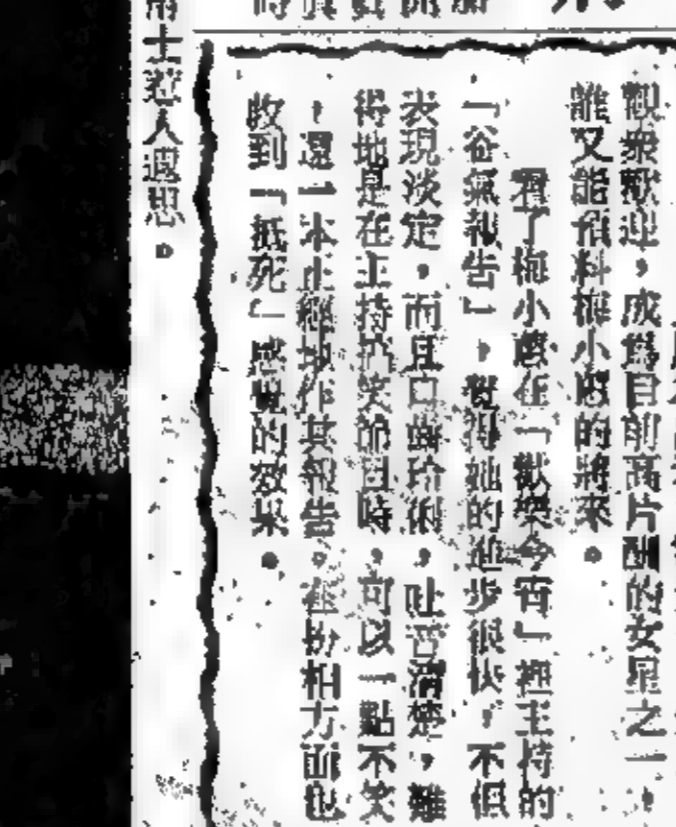 觀衆歡迎，成爲目前高片酬的女星之一，
誰又能預料梅小惑的將來。
看了梅小惑在「歡樂今宵」裡主持的
「谷氣報告」，覺得她的進步很快，不但
表現淡定，而且口齒玲俐，吐音清楚，難
得地是在主持搞笑節目時，可以一點不笑
，還一本正經地作其報告。在扮相方面也
收到「抵死」感覺的效果。
士惹人遐思。